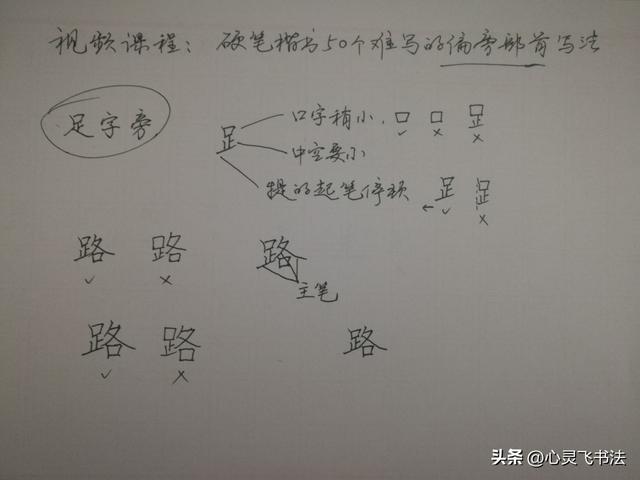 视频课程：硬笔楷书50个难写的偏旁部首写法
足字旁
𧾷 口字稍小. 口 口 𧾷
✓ × ×
中空要小
提的起笔停顿 ← 𧾷 𧾷
✓ ×
路 路 路
✓ × 主笔
路 路 路
✓ ×
头条@心灵飞书法